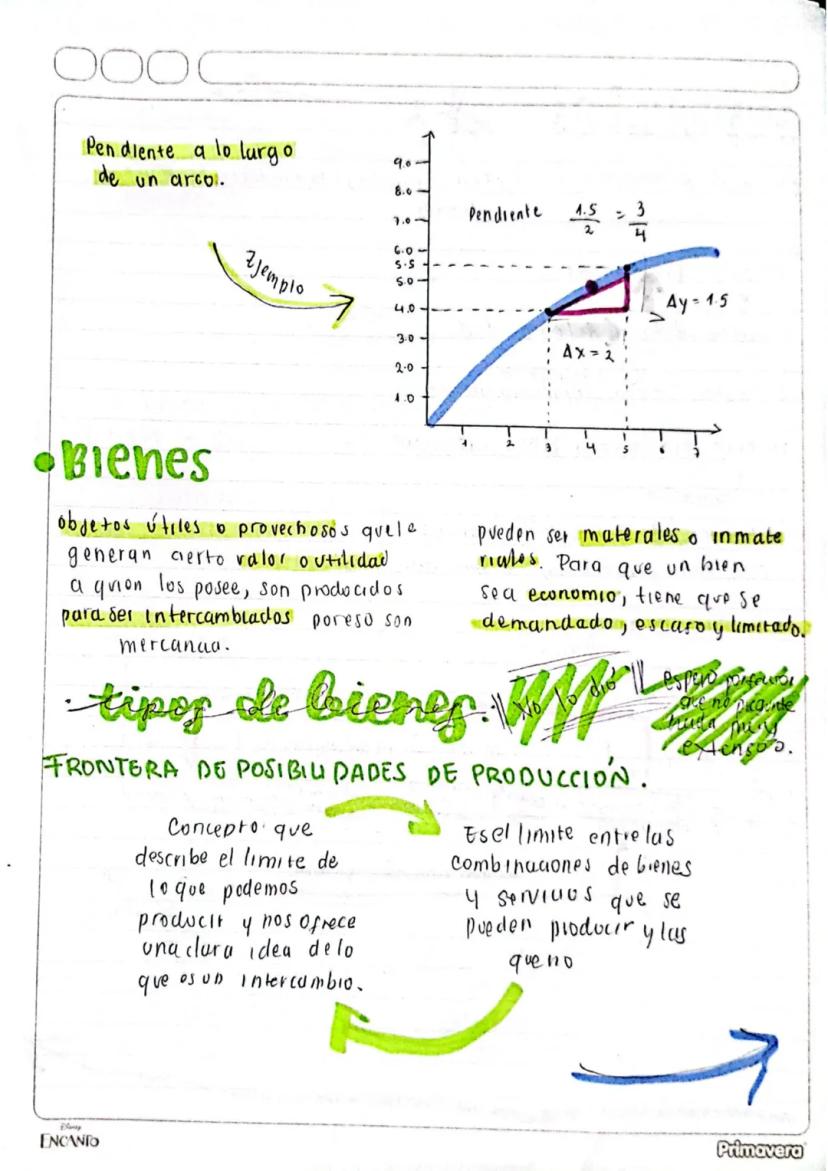 Pendiente a lo largo
de un arco.
Ejemplo
9.0
8.0
7.0
6.0
5.5
5.0
4.0
3.0
2.0
1.0
Pendiente 1.5/2 = 3/4
Δy = 1.5
Δx = 2
1 2 3 4 5 6 7
• Bienes
objetos útiles o provechosos que le
generan cierto valor o utilidad
a quien los posee, son producidos
para ser intercambiados por eso son
mercancia.
pueden ser materiales o inmate
riales. Para que un bien
sea economio, tiene que se
demandado, escaso y limitado.
· tipos de bienes. || No lo dió ||
espero
que no pregunte
nada muy
extenso.
FRONTERA DE POSIBILIDADES DE PRODUCCIÓN.
Concepto que
describe el limite de
lo que podemos
producir y nos ofrece
una clara idea de lo
que es un intercambio.
Es el limite entre las
combinaciones de bienes
y servicios que se
pueden producir y las
que no
Disney
ENCANTO
Primavera